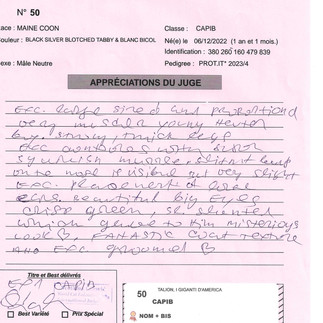 N° 50
ace : MAINE COON
Classe : CAPIB
ouleur : BLACK SILVER BLOTCHED TABBY & BLANC BICOL
Né(e) le : 06/12/2022 (1 an et 1 mois)
Identification : 380 260 160 479 839
exe : Mâle Neutre
Pedigree : PROT.IT* 2023/4
APPRÉCIATIONS DU JUGE
Exc. large sized and proportioned
very muscled young neuter
big, strong, thick legs
Exc
squarish muzzle, slight bump
onto nose is visible but very slight
Exc. placement of ears
beautiful big Eyes
green,
which gives to him misterious
look, FANTASTIC coat texture
AND EXC groomed
Titre et Best délivrés
EX1 CAPIB
Best Variété
Prix Spécial
50
TALION, I GIGANTI D'AMERICA
CAPIB
NOM + BIS